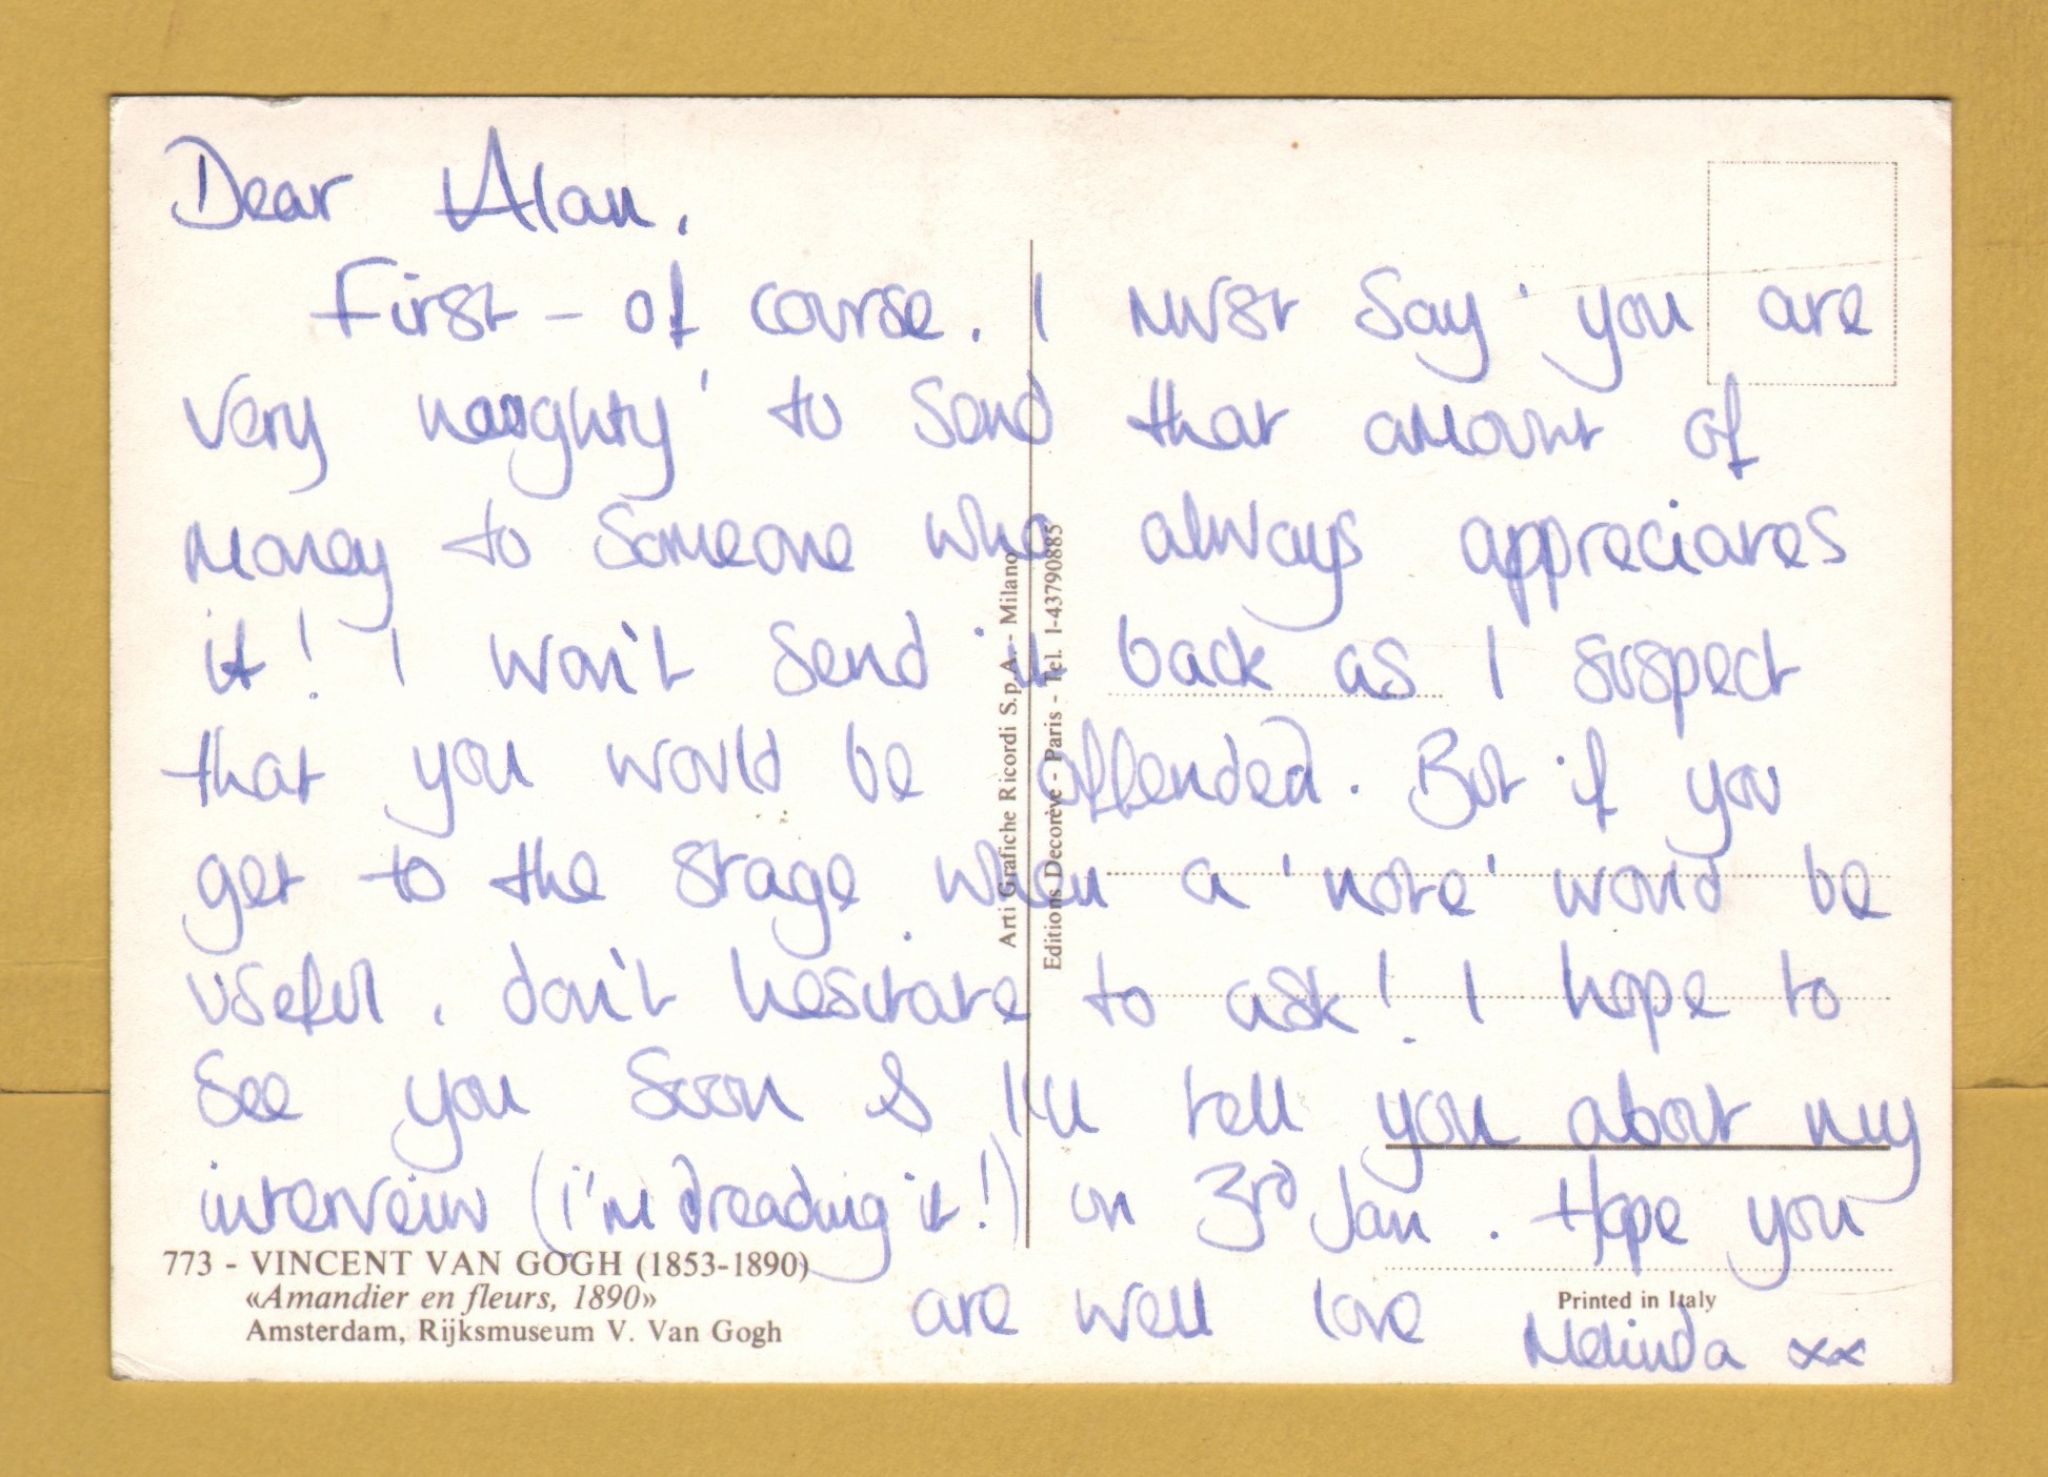 Dear Alan,
First - of course. I must say 'you are
very naughty' to send that amount of
money to someone who always appreciates
it! I won't send it back as I suspect
that you would be offended. But if you
get to the stage when a 'note' would be
useful, don't hesitate to ask! I hope to
see you soon & I'll tell you about my
interveiw (i'm dreading it!) on 3rd Jan. Hope you
are well love
Melinda xx
773 - VINCENT VAN GOGH (1853-1890)
«Amandier en fleurs, 1890»
Amsterdam, Rijksmuseum V. Van Gogh
Arti Grafiche Ricordi S.p.A. - Milano
Editions Decorève - Paris - Tel. 1-43790885
Printed in Italy